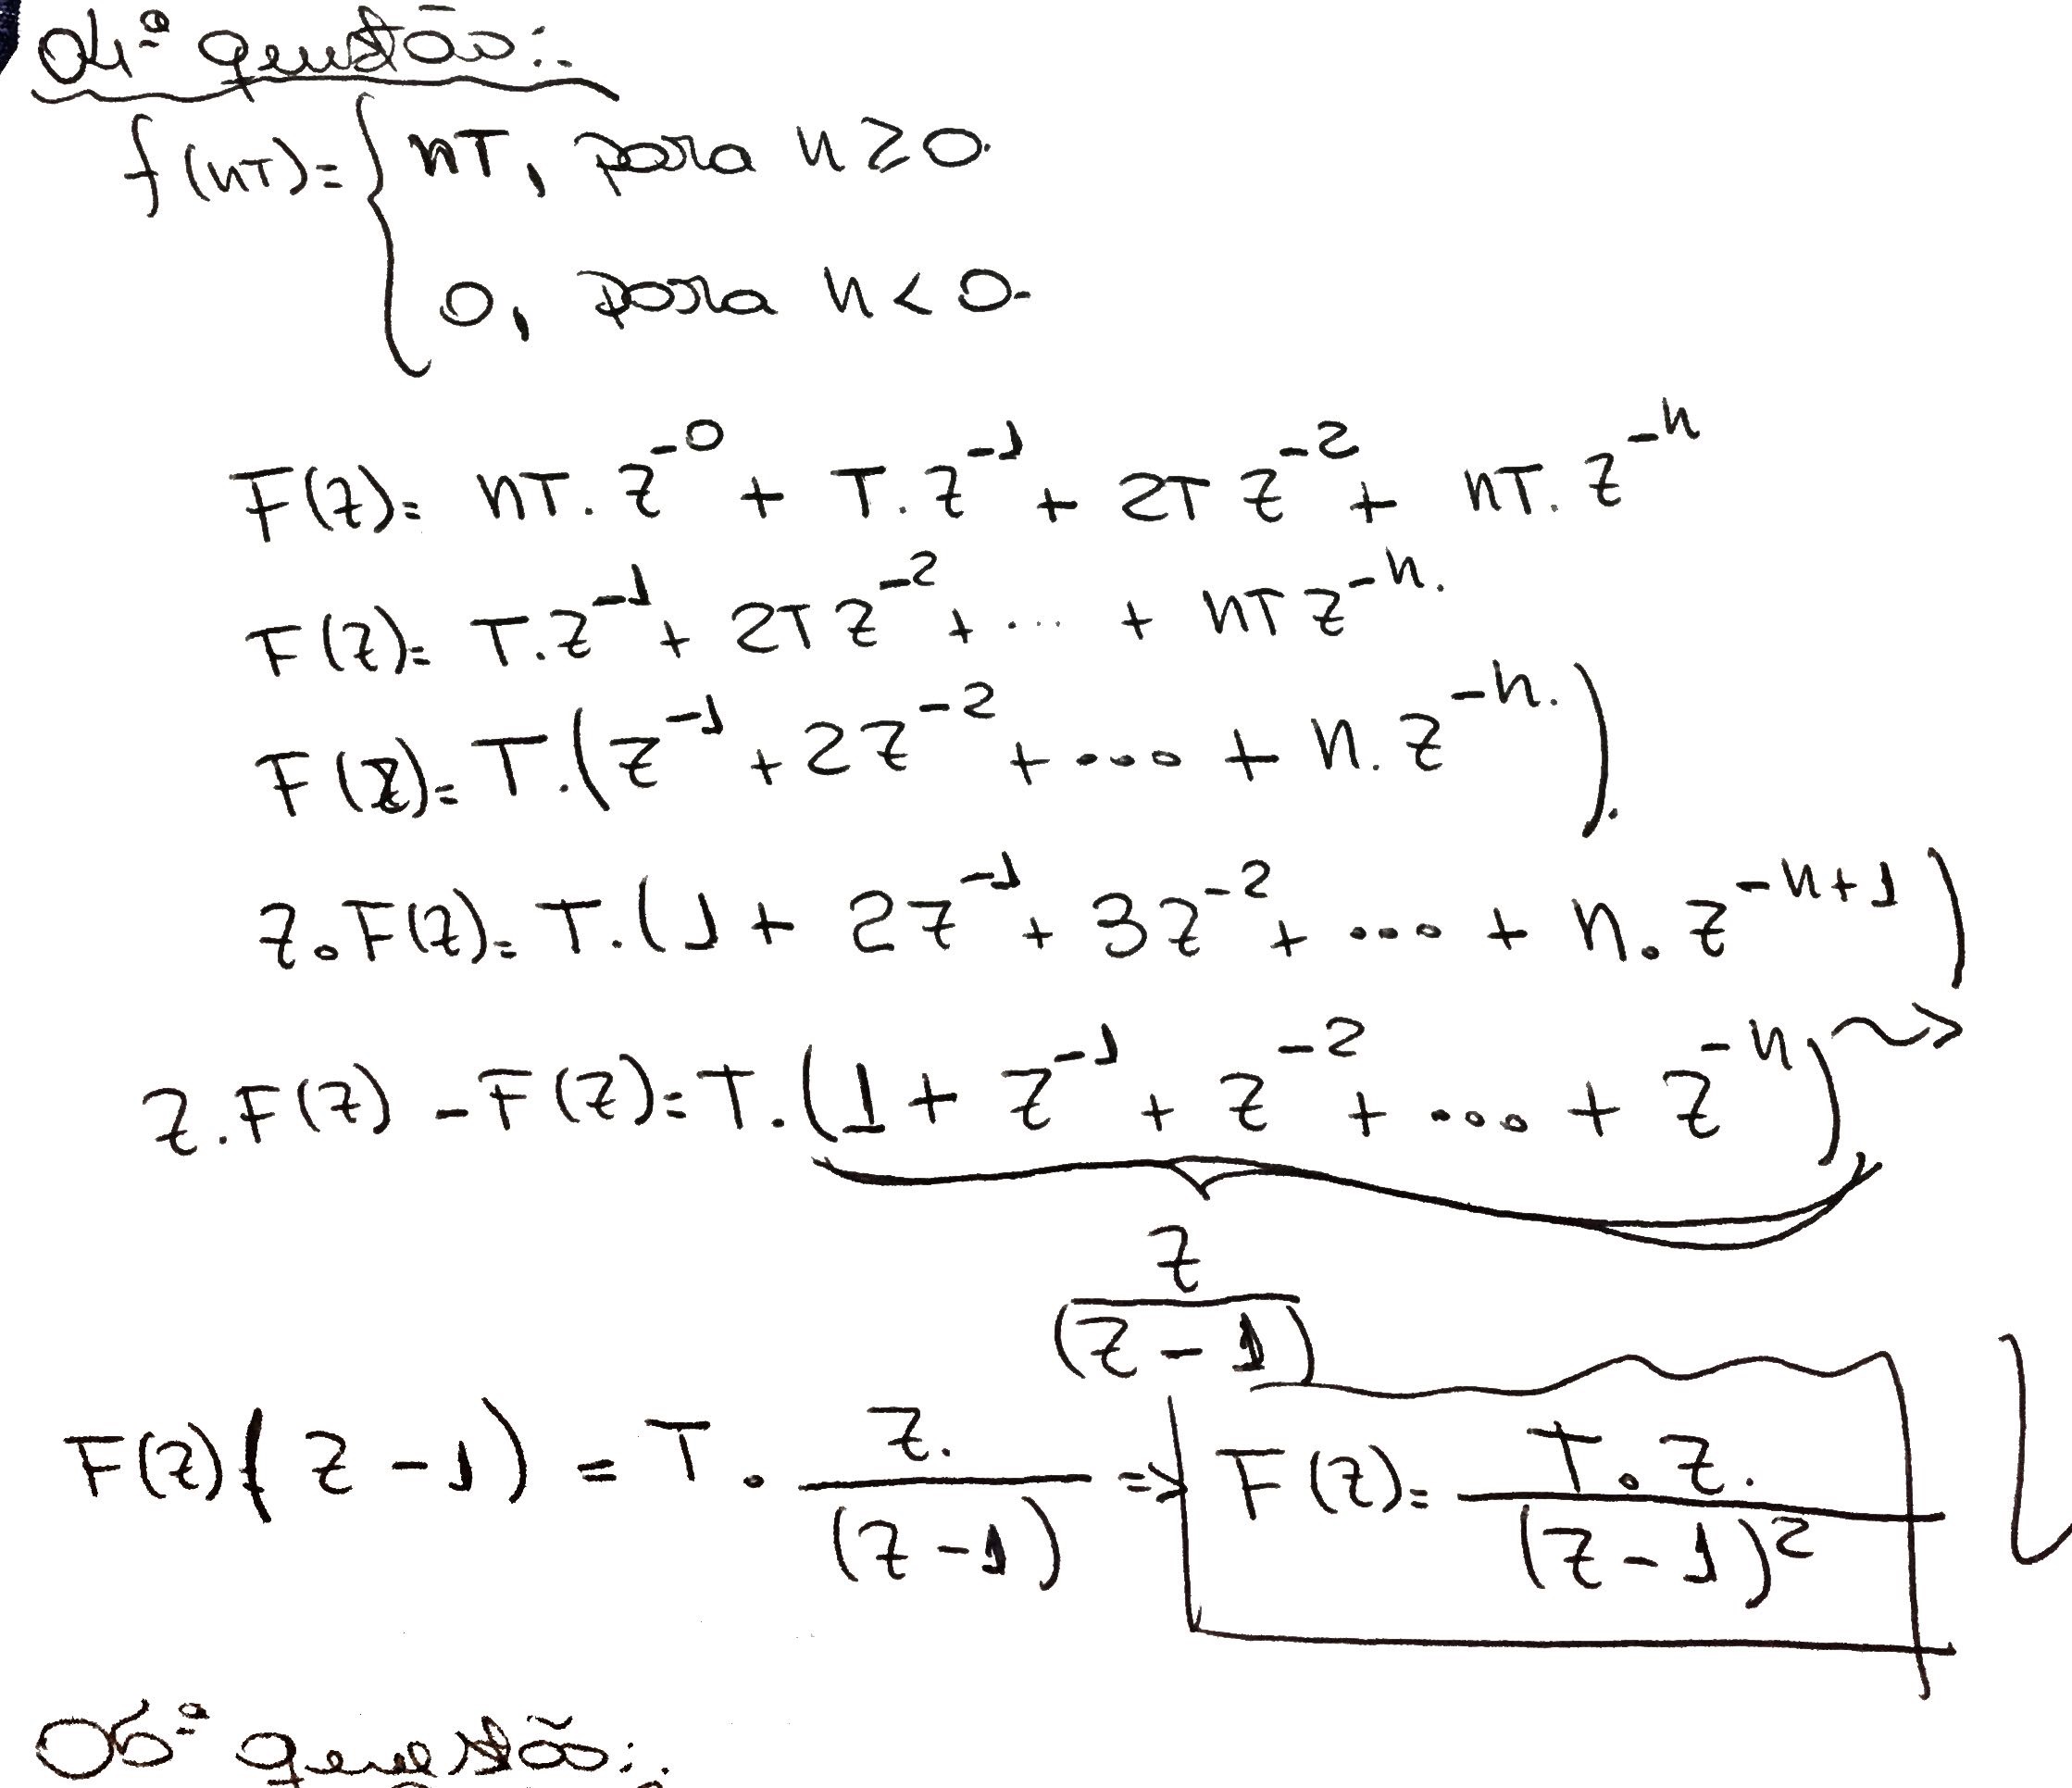 04ª questão:.
f(nT)= { nT, para n≥0.
0, para n<0.
F(z)= nT.z^-0 + T.z^-1 + 2T z^-2 + nT.z^-n
F(z)= T.z^-1 + 2T z^-2 + ... + nT z^-n.
F(z)= T.(z^-1 + 2z^-2 + ... + n.z^-n.).
z.F(z)= T.(1 + 2z^-1 + 3z^-2 + ... + n.z^-n+1)
z.F(z) - F(z)= T.(1 + z^-1 + z^-2 + ... + z^-n) ~>
z/(z-1)
F(z)(z-1) = T . z./(z-1) => F(z)= T.z./(z-1)²
06ª questão:.